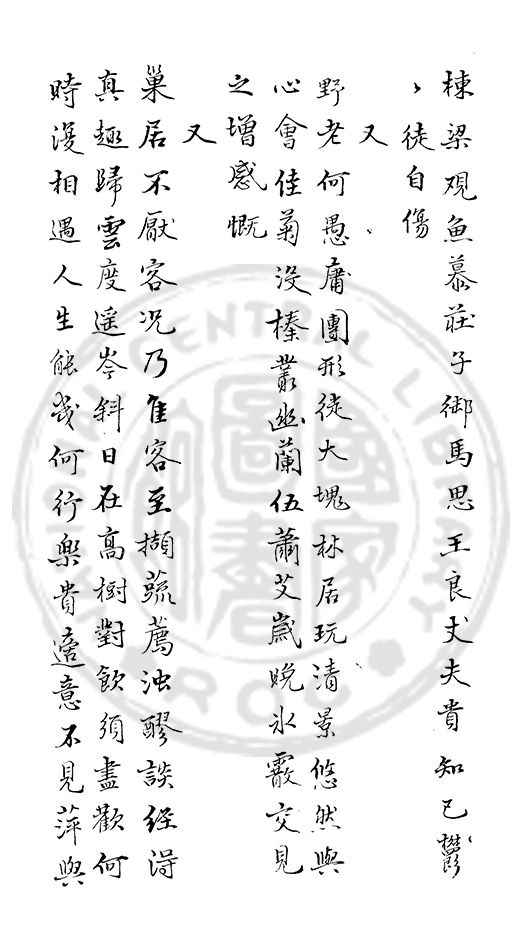 棟梁觀魚慕莊子御馬思王良丈夫貴知己鬱
〻徒自傷
又
野老何愚庸團形徒大塊林居玩清景悠然與
心會佳菊沒榛叢幽蘭伍蕭艾歲晚氷霰交見
之增感慨
又
巢居不厭客况乃佳客至擷蔬薦浊醪談經得
真趣歸雲度遥岑斜日在高樹對飲須盡歡何
時漫相遇人生能幾何行樂貴適意不見萍與
NATIONAL CENTRAL LIBRARY
ROC
國家圖書館